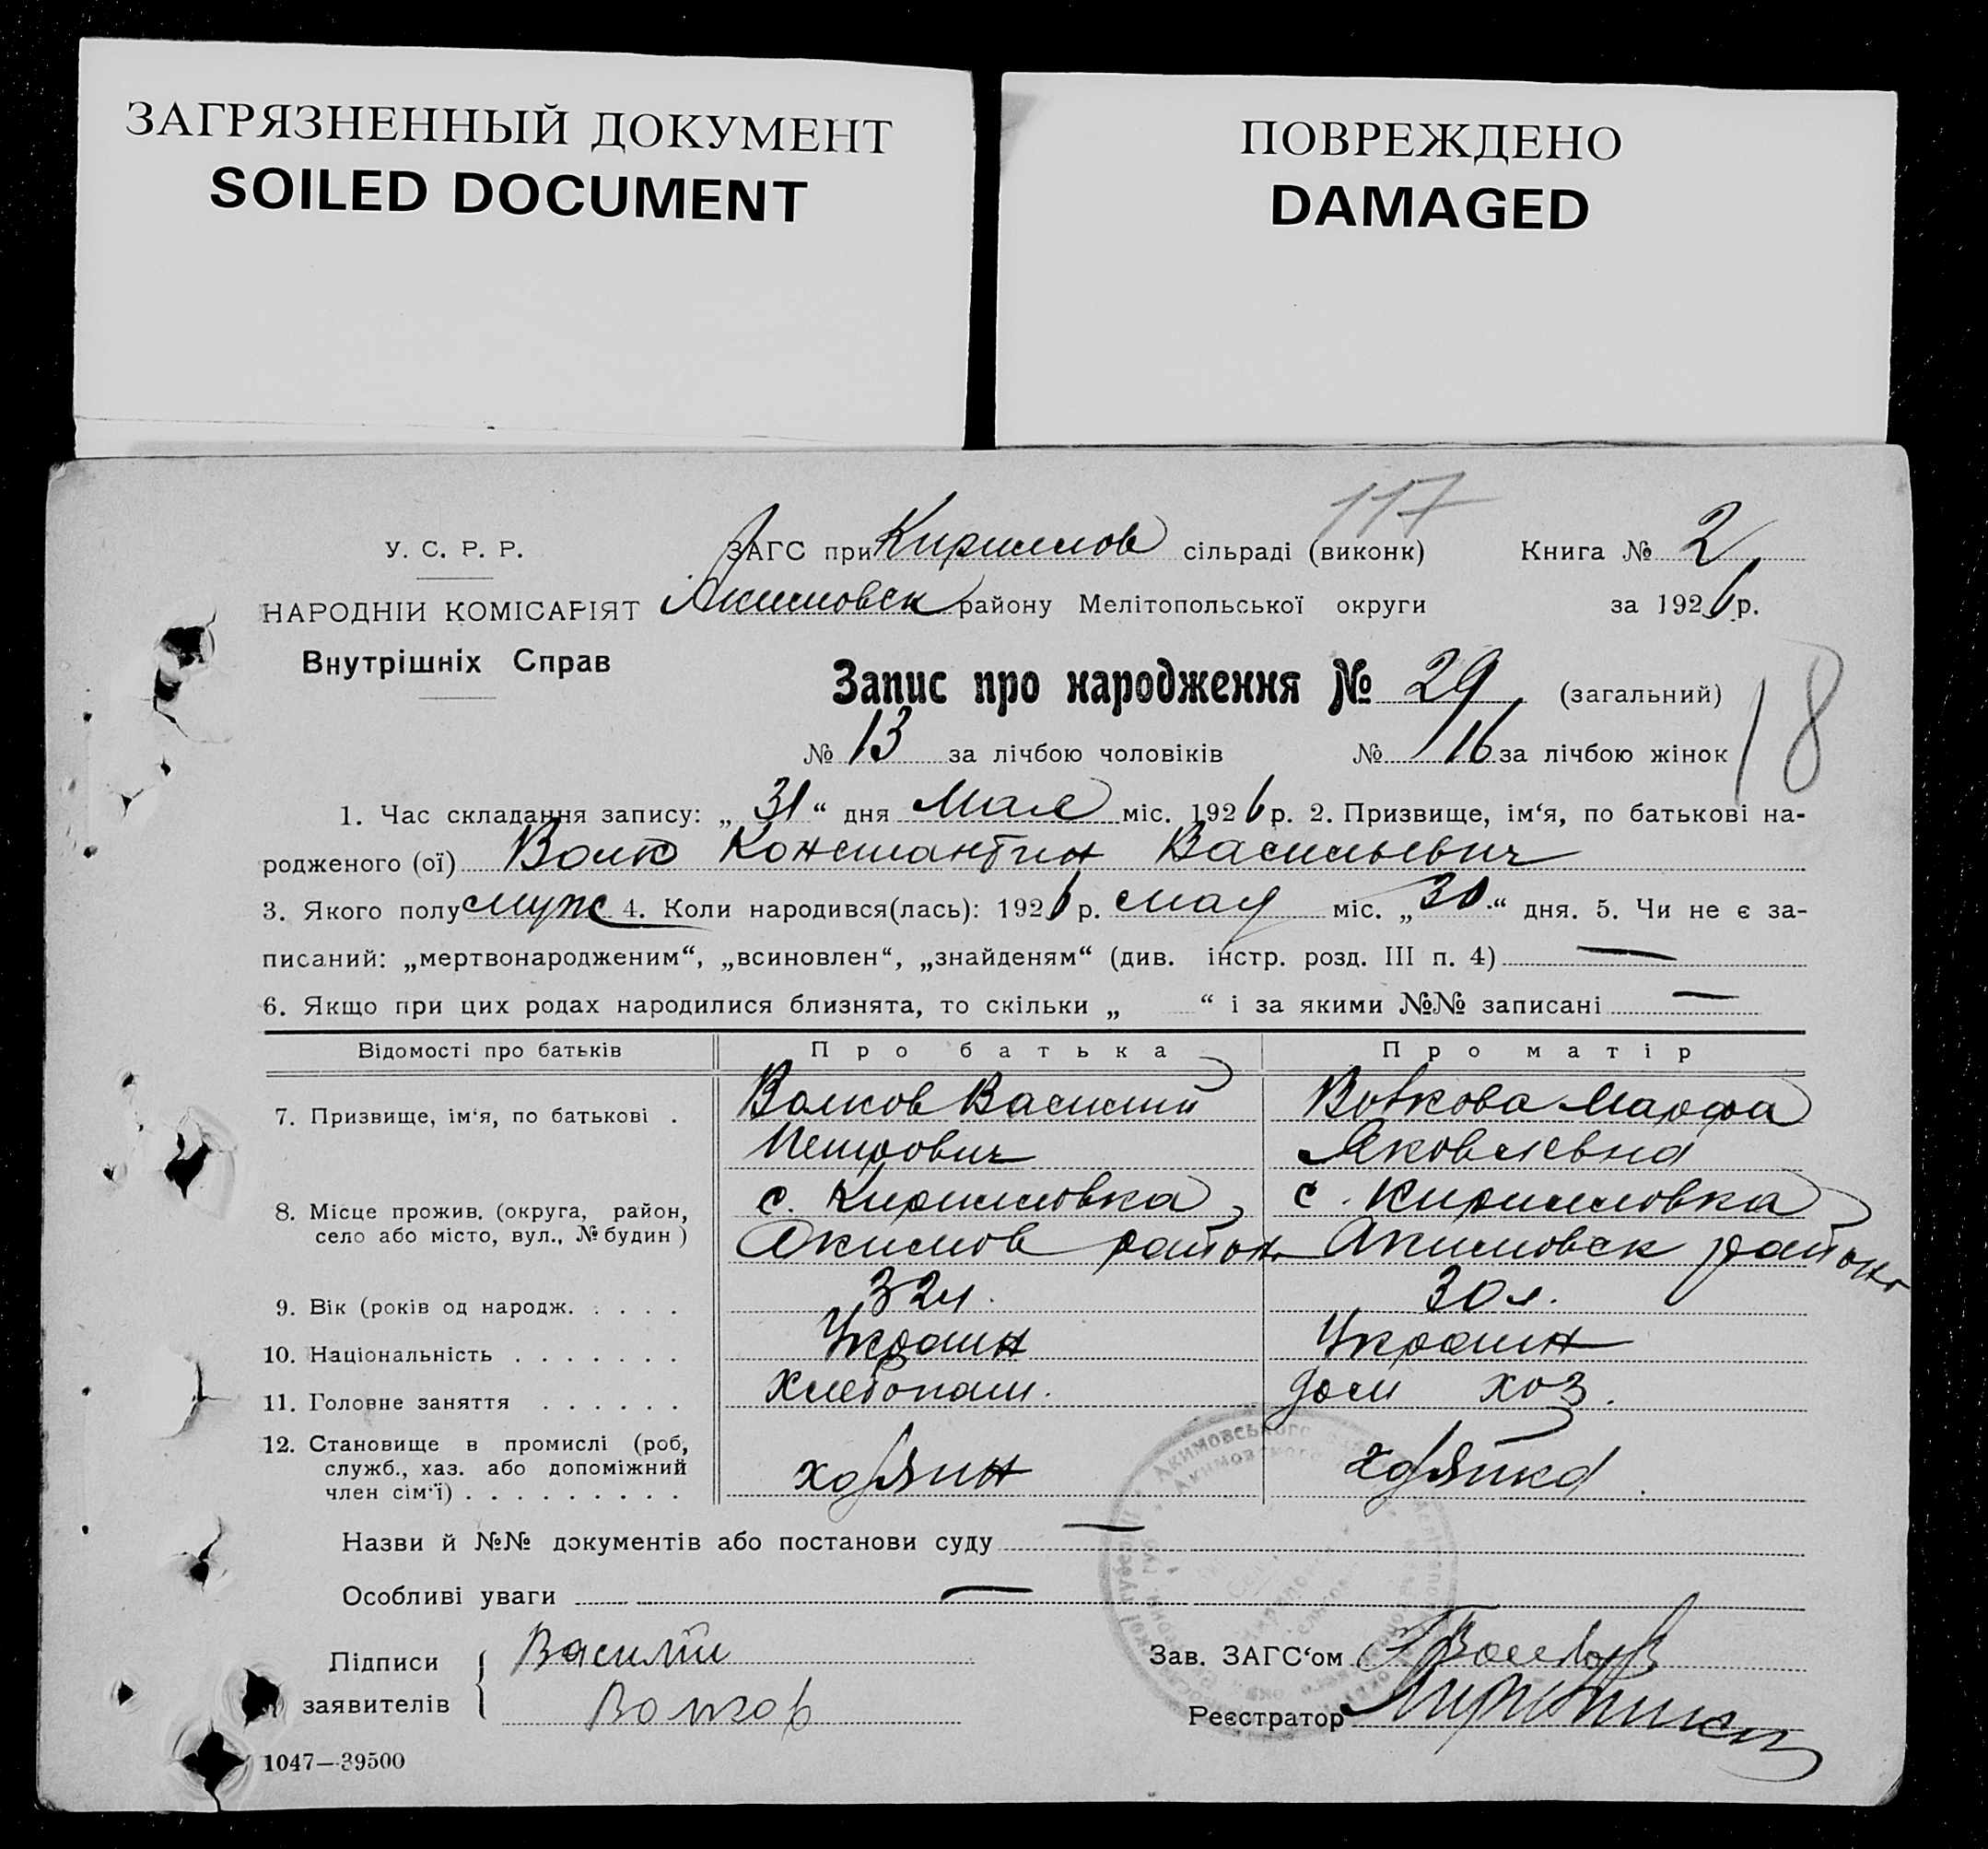 ЗАГРЯЗНЕННЫЙ ДОКУМЕНТ
SOILED DOCUMENT
ПОВРЕЖДЕНО
DAMAGED
117
У. С. Р. Р.
ЗАГС при Кирилов сільраді (виконк) Книга № 2
НАРОДНІЙ КОМІСАРІЯТ Акимовск району Мелітопольської округи за 1926 р.
Внутрішніх Справ
Запис про народження № 29 (загальний)
18
№ 13 за лічбою чоловіків № 16 за лічбою жінок
1. Час складання запису: „31“ дня Мая міс. 1926 р. 2. Призвище, ім‘я, по батькові на-
родженого (ої) Волков Константин Васильевич
3. Якого полу муж 4. Коли народився(лась): 1926 р. мая міс. „30“ дня. 5. Чи не є за-
писаний: „мертвонародженим“, „всиновлен“, „знайденям“ (див. інстр. розд. III п. 4) —
6. Якщо при цих родах народилися близнята, то скільки „ “ і за якими №№ записані —
Відомості про батьків Про батька Про матір
7. Призвище, ім‘я, по батькові . Волков Василий Волкова Марфа
Петрович Яковлевна
8. Місце прожив. (округа, район, с. Кирилловка с. Кирилловка
село або місто, вул., № будин) Акимов район Акимовск района
9. Вік (років од народж. . . . . 32 л. 30 л.
10. Національність . . . . . . . Украин Украин
11. Головне заняття . . . . . . Хлебопаш. дом хоз.
12. Становище в промислі (роб,
служб., хаз. або допоміжний хозяин хозяйка
член сім‘ї) . . . . . . . . .
Назви й №№ документів або постанови суду —
Особливі уваги —
Підписи Василий Зав. ЗАГС‘ом
заявителів Волков Реєстратор
1047—39500